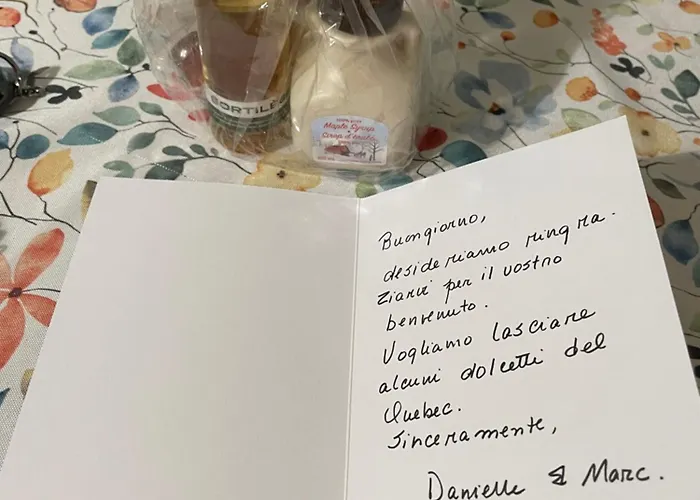 SORTILÈGE
100% PURE
Maple Syrup
Sirop d'érable
Buongiorno,
desideriamo ringra.
ziarvi per il vostro
benvenuto.
Vogliamo lasciare
alcuni dolcetti del
Quebec.
Sinceramente,
Danielle & Marc.